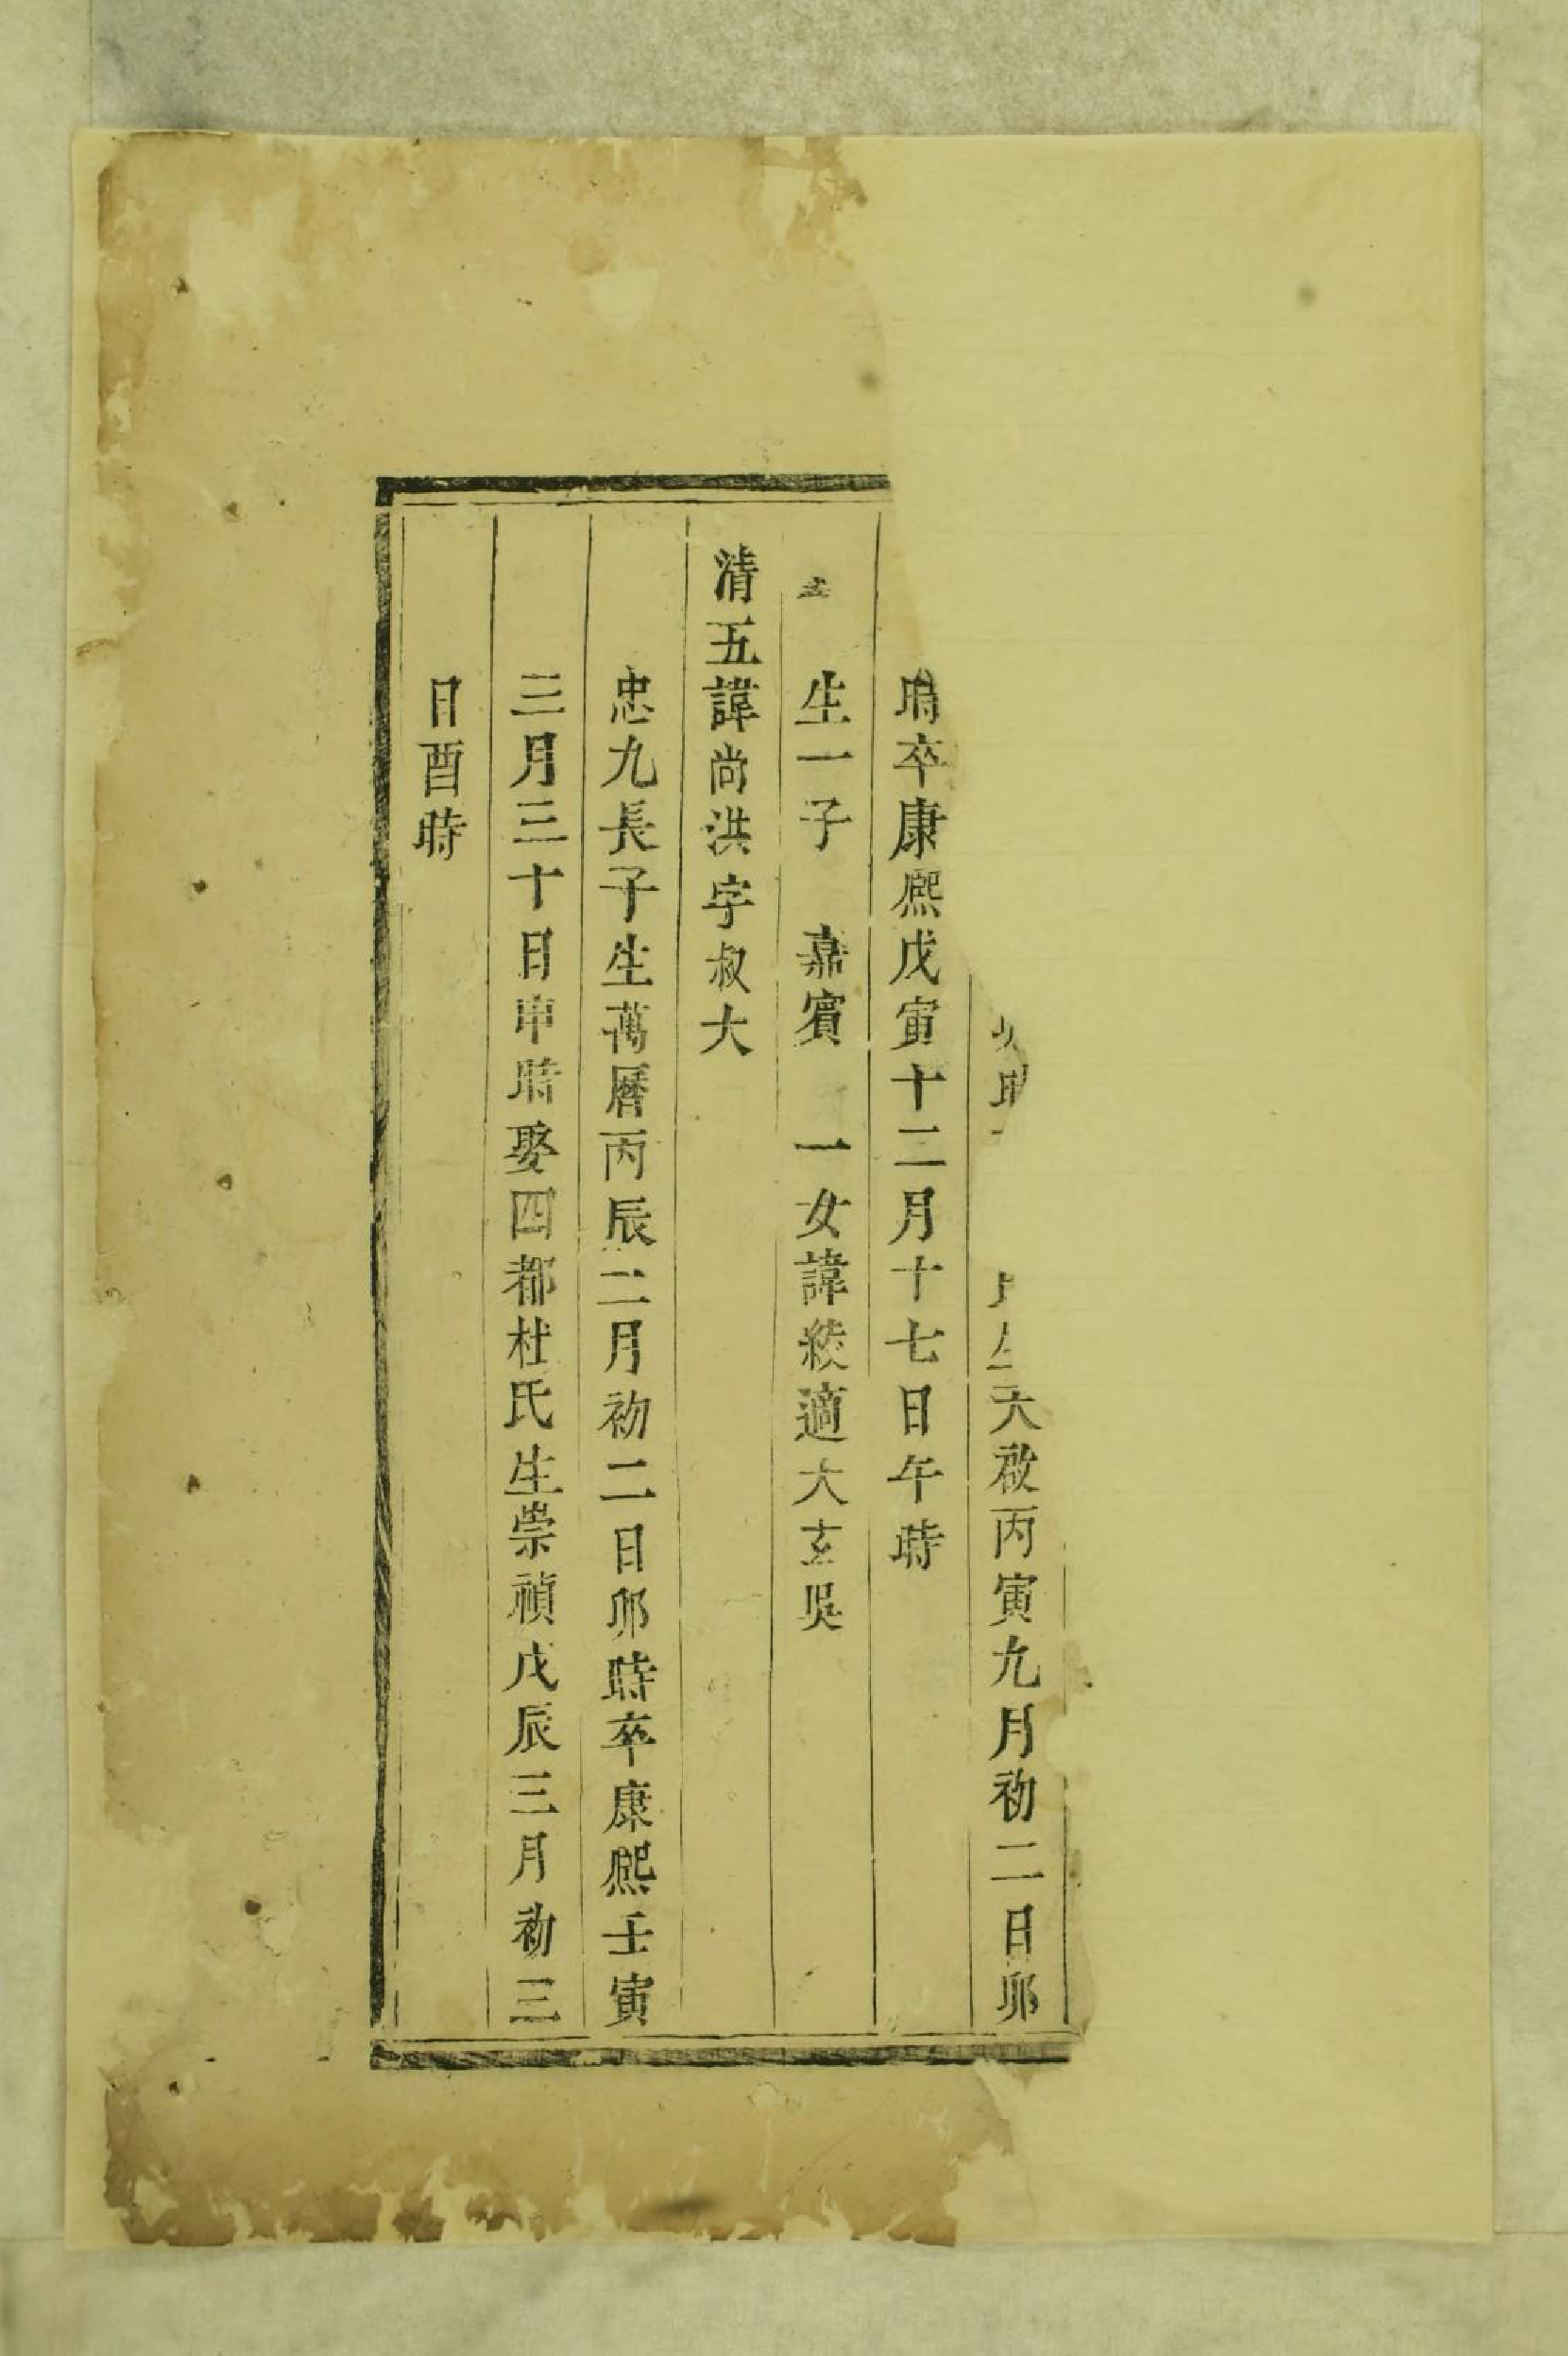 天啟丙寅九月初二日卯
時卒康熙戊寅十二月十七日午時
生一子 嘉賓 一女諱緞適大玄吳
清五諱尚洪字叔大
忠九長子生萬曆丙辰二月初二日卯時卒康熙壬寅
三月三十日申時娶四都杜氏生崇禎戊辰三月初三
日酉時